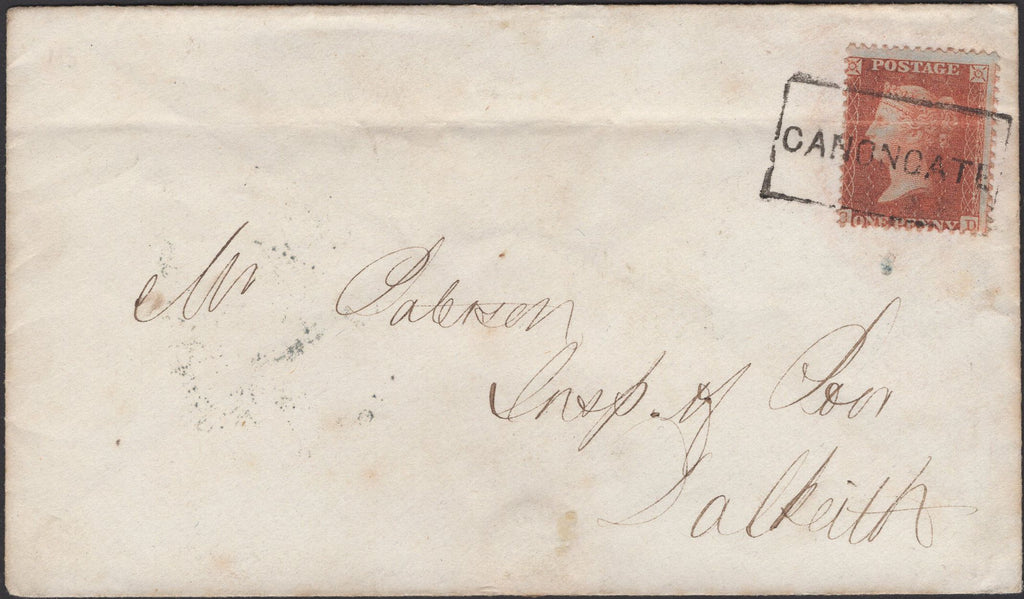 POSTAGE
CANONGATE
ONE PENNY
D
Mr Paterson
Insp. of Poor
Dalkeith